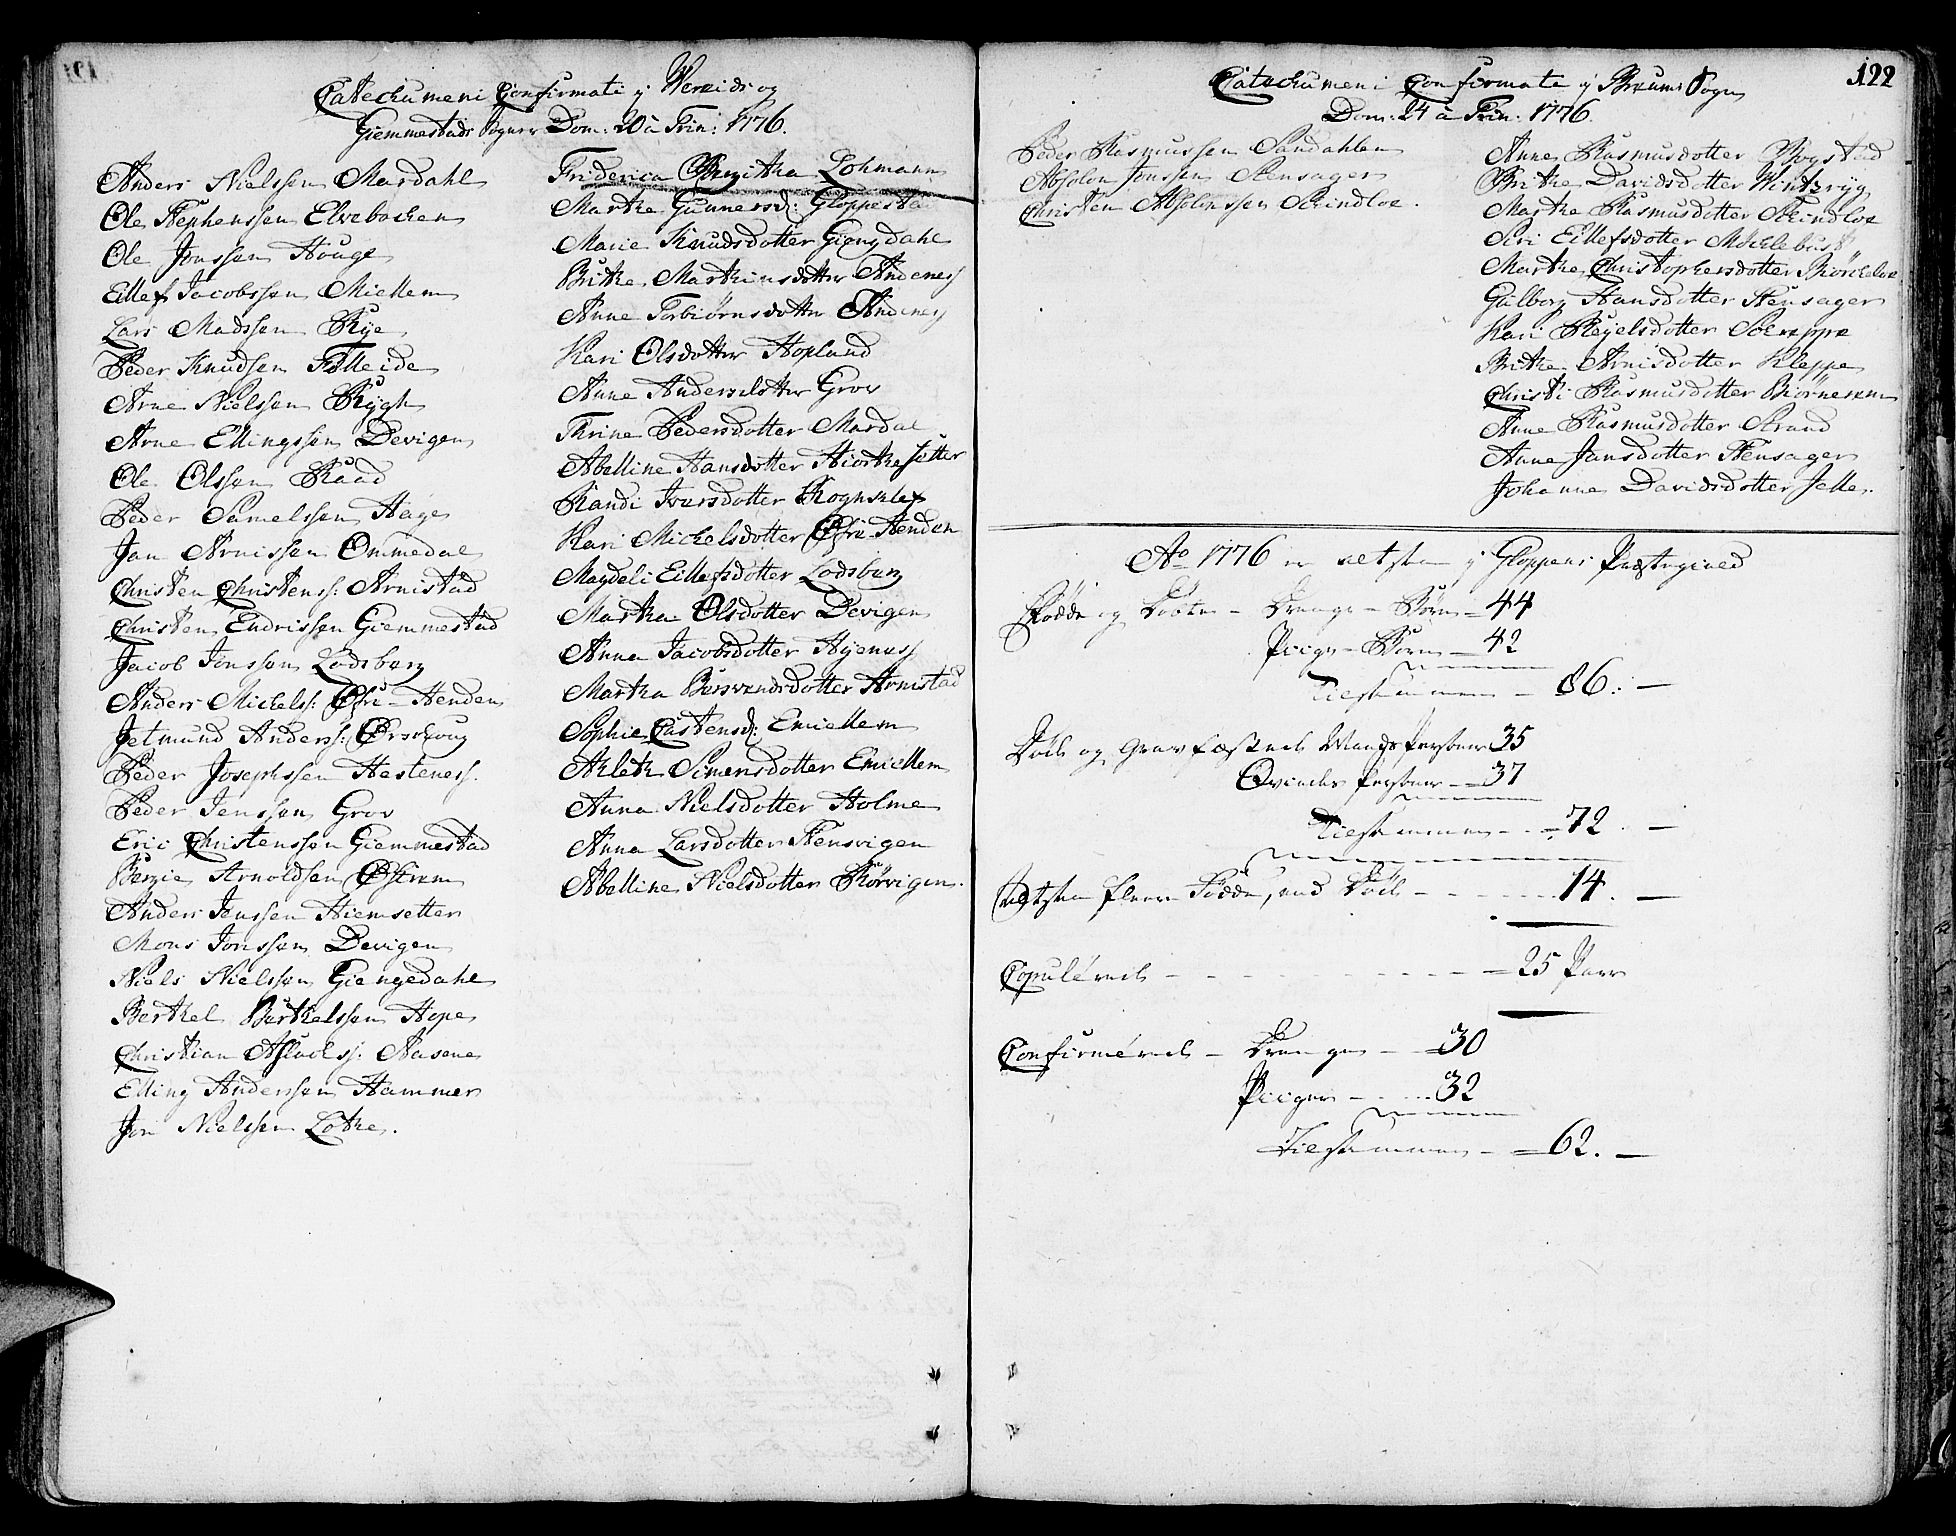 Catechumeni Confirmati y Vereids og
Giemmestads Sogner Dom: 20 à Trin: 1776.
Anders Nielssen Mardahl
Ole Stephenssen Elvebacken
Ole Jonssen Houge
Eillef Jacobssen Miellem
Lars Madssen Rye
Peder Knudsen Følleide
Arne Nielssen Rygh
Arne Ellingssen Devigen
Ole Olssen Raad
Peder Samelssen Hage
Jan Arnissen Ommedal
Christen Christenss: Arnistad
Christen Endrissen Giemmestad
Jacob Jonssen Lodsberg
Anders Michelss: Øfri-Henden
Jetmund Anderss:
Peder Josephssen Hesteness.
Peder Jenssen Grov
Eric Christenssen Giemmestad
Arnoldsen Østrem
Anders Jenssen Hiemsetter
Mons Jonssen Devigen
Niels Nielssen Giengedahl
Berthel Berthelssen Hope
Christian Aslachs: Aasene
Elling Anderssen Hammer
Jon Nielssen Lothe.
Friderica Lohmann
Marthe Gunnersd: Gloppestad
Marie Knudsdotter Giengdahl
Brithe Marthinsdotter Andenes
Anne Torbiørnsdotter Andenes
Kari Olsdotter Hopland
Anne Andersdotter Grov
Thrine Pedersdotter Mardal
Abelline Hansdotter Hiorthesetter
Randi Iversdotter Rognklef
Kari Michelsdotter Øfri-Henden
Magdeli Eillefsdotter Lodsberg
Martha Olsdotter Devigen
Anna Jacobsdotter Hyenes
Martha Bersvendsdotter Arnistad
Sophie Castensd: Emiellem
Ahlethe Simensdotter Emiellem
Anna Nielsdotter Holme
Anna Larsdotter Stensvigen
Abelline Nielsdotter Rørvigen.
122
Catechumeni Confirmata y Breums Sogn
Dom: 24 à Trin: 1776.
Peder Rasmussen Sandahlen
Absolon Jonssen Stensager
Christen Absolonssen Skindloe.
Anne Rasmusdotter Myrgstad
Brithe Davidsdotter Winteryg
Marthe Rasmusdotter Skindloe
Siri Eillefsdotter Micklebust
Marthe Christophersdotter Biørckeloe
Gulborg Hansdotter Stensager
Kari Reyelsdotter Soereppe
Brithe Arnisdotter Kleppe
Christi Rasmusdotter Biørnerem
Anne Rasmusdotter Strand
Anne Jansdotter Stensager
Johanne Davidsdotter Felle.
Ao 1776 er altsaa y Gloppens Præstegield
Fødde og Døbte - Drenge-Børn = 44
Piige-Børn = 42
Tilsammen - 86. -
Døde og Gravfæstede Mands Personer 35
Qvindes Personer = 37
Tilsammen - = 72. -
Altsaa fleere Fødde, end Døde - - - 14. -
Copulerede - - - - = 25 Parr
Confirmerede - Drenge - = 30
Piiger - - 32
Tilsammen - = 62. -